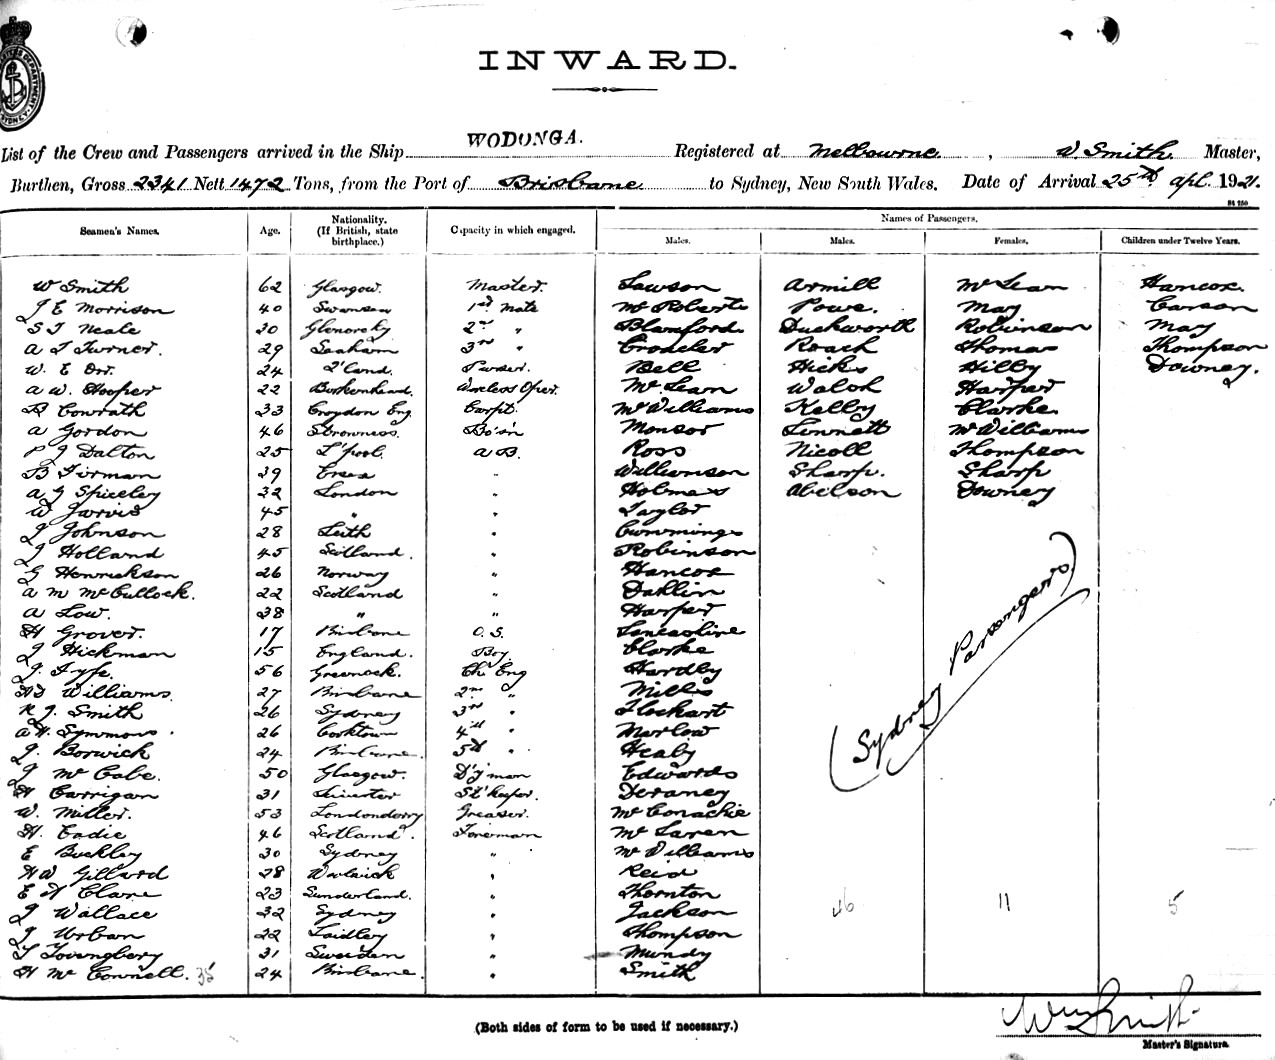 INWARD.
List of the Crew and Passengers arrived in the Ship WODONGA. Registered at Melbourne. , W. Smith. Master,
Burthen, Gross 2341 Nett 1472 Tons, from the Port of Brisbane to Sydney, New South Wales. Date of Arrival 25th Apl. 1921.
Names of Passengers.
Seamen's Names. Age. Nationality. (If British, state birthplace.) Capacity in which engaged. Males. Males. Females. Children under Twelve Years.
W Smith 62 Glasgow. Master. Lawson Armill McLean Hancox.
J E Morrison 40 Swansea 1st Mate McRoberts Powe. May Carson
S J Neale 30 Glenorchy 2nd " Blamford Duckworth Robinson May
A J Turner. 29 Seaham 3rd " Roach Thomas Thompson
W. E Orr. 24 Z'land. Purser. Bell Hicks Hilby Downey.
A W. Hooper 22 Birkenhead. Wireless Oper. McLean Walsh Harper
B Conrath 33 Croydon Eng Carpt. McWilliams Kelby Clarke.
A Gordon 46 Stromness. Bo'sn Monsor Sinnett McWilliams
P J Dalton 25 L'pool. A B. Ross Nicoll Thompson
B Firman 39 Essex " Williamson Sharp. Sharp
A G Spiceley 32 London " Holmes Abelson Downey
W Jarvis 45 " " Taylor
J Johnson 28 Leith " Cummings
J Holland 45 Scotland. " Robinson
G Henrickson 26 Norway " Hancox
A M McCullock. 22 Scotland " Dahlin
A Low. 38 " " Harper
H Grover. 17 Brisbane O. S. Lancashire
J Hickman 15 England. Boy Clarke
J. Fyfe. 56 Greenock. Ch Eng Hardby
Williams. 27 Brisbane 2nd " Mills
R J. Smith 26 Sydney 3rd " Flockart
A H. Symmons. 26 Cooktown 4th " Marlow
J. Borwick 24 Brisbane. 5th " Healy
J McCabe. 50 Glasgow. D'yman Edwards
H Carrigan 31 Leinster St'keeper. Deraney
W. Miller. 53 Londonderry Greaser. McConachie
H. Eadie 46 Scotland. Foreman McLaren
E Buckley 30 Sydney " McWilliams
H W Gillard 28 Woolwich " Reid
E H Clare 23 Sunderland. " Thornton
J Wallace 32 Sydney " Jackson
J Urban 22 Laidley " Thompson
Tovengberg 31 Sweden " Mundy
H McConnell. 35 24 Brisbane. " Smith
(Sydney Passengers)
46 11 5
(Both sides of form to be used if necessary.)
Wm Smith
Master's Signature.